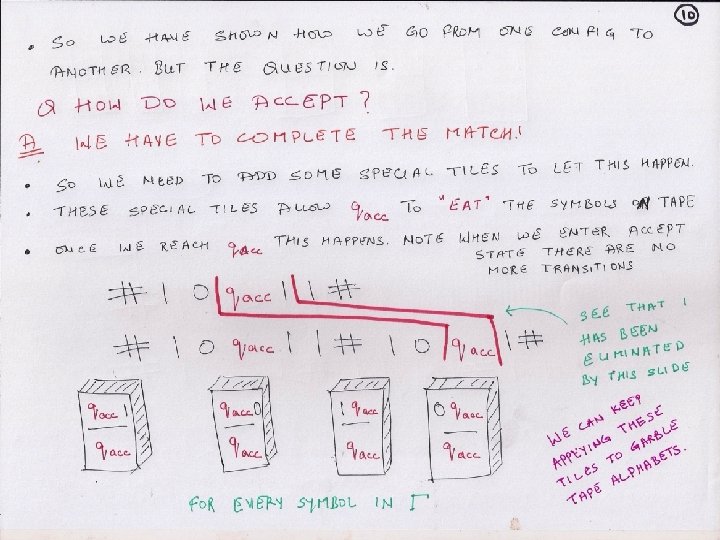 10
• SO WE HAVE SHOWN HOW WE GO FROM ONE CONFIG TO
ANOTHER. BUT THE QUESTION IS.
Q HOW DO WE ACCEPT?
A. WE HAVE TO COMPLETE THE MATCH!
• SO WE NEED TO ADD SOME SPECIAL TILES TO LET THIS HAPPEN.
• THESE SPECIAL TILES ALLOW qacc TO "EAT" THE SYMBOLS ON TAPE
• ONCE WE REACH qacc THIS HAPPENS. NOTE WHEN WE ENTER ACCEPT
STATE THERE ARE NO
MORE TRANSITIONS
# 1 0 qacc 1 1 #
# 1 0 qacc 1 1 # 1 0 qacc 1 #
SEE THAT 1
HAS BEEN
ELIMINATED
BY THIS SLIDE
qacc 1
qacc
qacc 0
qacc
1 qacc
qacc
0 qacc
qacc
WE CAN KEEP
APPLYING THESE
TILES TO GARBLE
TAPE ALPHABETS.
FOR EVERY SYMBOL IN Γ